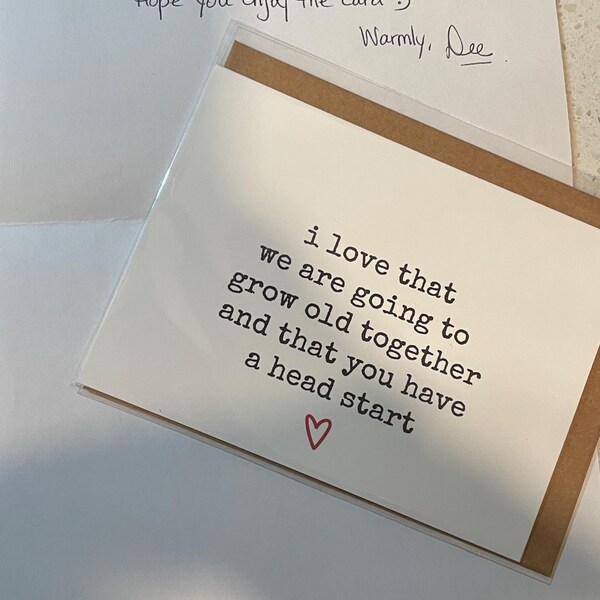 Hope you enjoy the card :)
Warmly, Dee.
i love that
we are going to
grow old together
and that you have
a head start